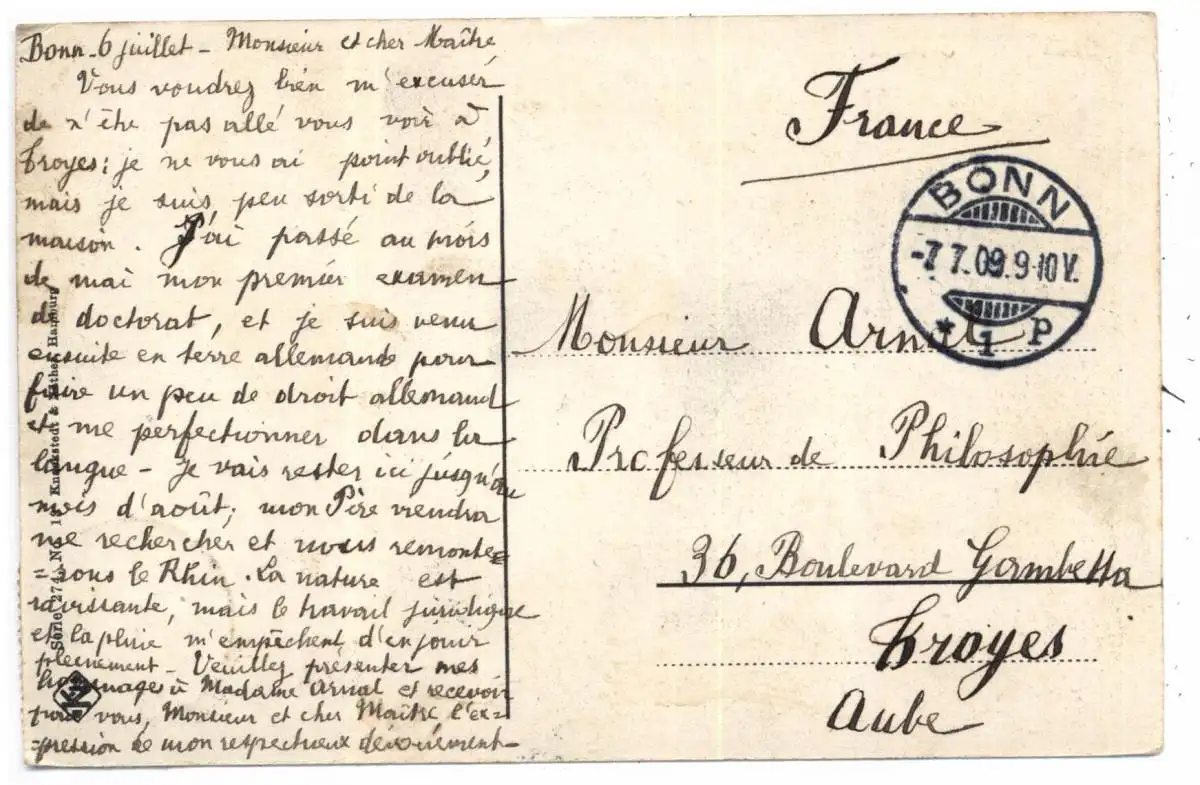 Bonn - 6 juillet - Monsieur et cher Maître
Vous voudrez bien m'excuser
de n'être pas allé vous voir à
Troyes : je ne vous ai point oublié,
mais je suis peu sorti de la
maison. J'ai passé au mois
de mai mon premier examen
de doctorat, et je suis venu
ensuite en terre allemande pour
faire un peu de droit allemand
et me perfectionner dans la
langue - je vais rester ici jusqu'au
mois d'août; mon Père viendra
me rechercher et nous remonte=
=rons le Rhin. La nature est
ravissante, mais le travail juridique
et la pluie m'empêchent d'en jouir
pleinement - Veuillez présenter mes
hommages à Madame Arnal et recevoir
pour vous, Monsieur et cher Maître l'ex=
=pression de mon respectueux dévouement -
Serie 274, No. 1 Knackstedt & Näther, Hamburg
France
BONN
-7.7.09.9-10V.
* 1 P
Monsieur Arnal
Professeur de Philosophie
36, Boulevard Gambetta
Troyes
Aube